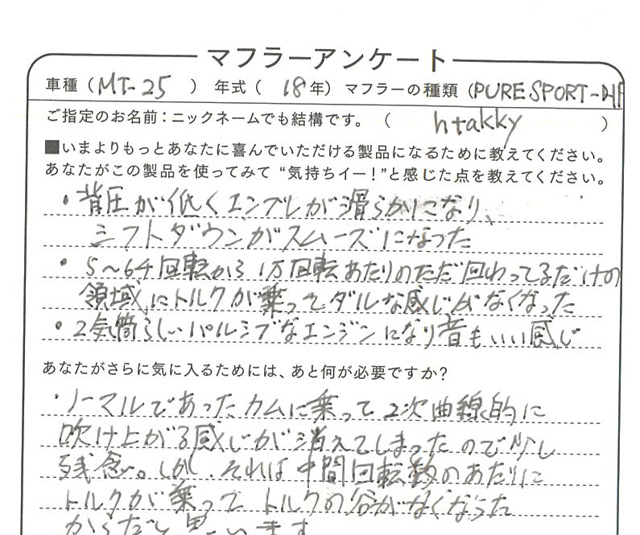 マフラーアンケート
車種（MT-25　）　年式（　18年）マフラーの種類（PURE SPORT-
ご指定のお名前：ニックネームでも結構です。（　htakky　）
■いまよりもっとあなたに喜んでいただける製品になるために教えてください。
あなたがこの製品を使ってみて“気持ちイー！”と感じた点を教えてください。
・背圧が低くエンブレが滑らかになり、
シフトダウンがスムーズになった
・5〜6千回転から1万回転あたりのただ回わってるだけの
領域にトルクが乗ってダルな感じがなくなった
・2気筒らしいパルシブなエンジンになり音もいい感じ
あなたがさらに気に入るためには、あと何が必要ですか？
・ノーマルであったカムに乗って2次曲線的に
吹け上がる感じが消えてしまったので少し
残念。しかし、それは中間回転数のあたりに
トルクが乗って トルクの谷がなくなった
からだと思います